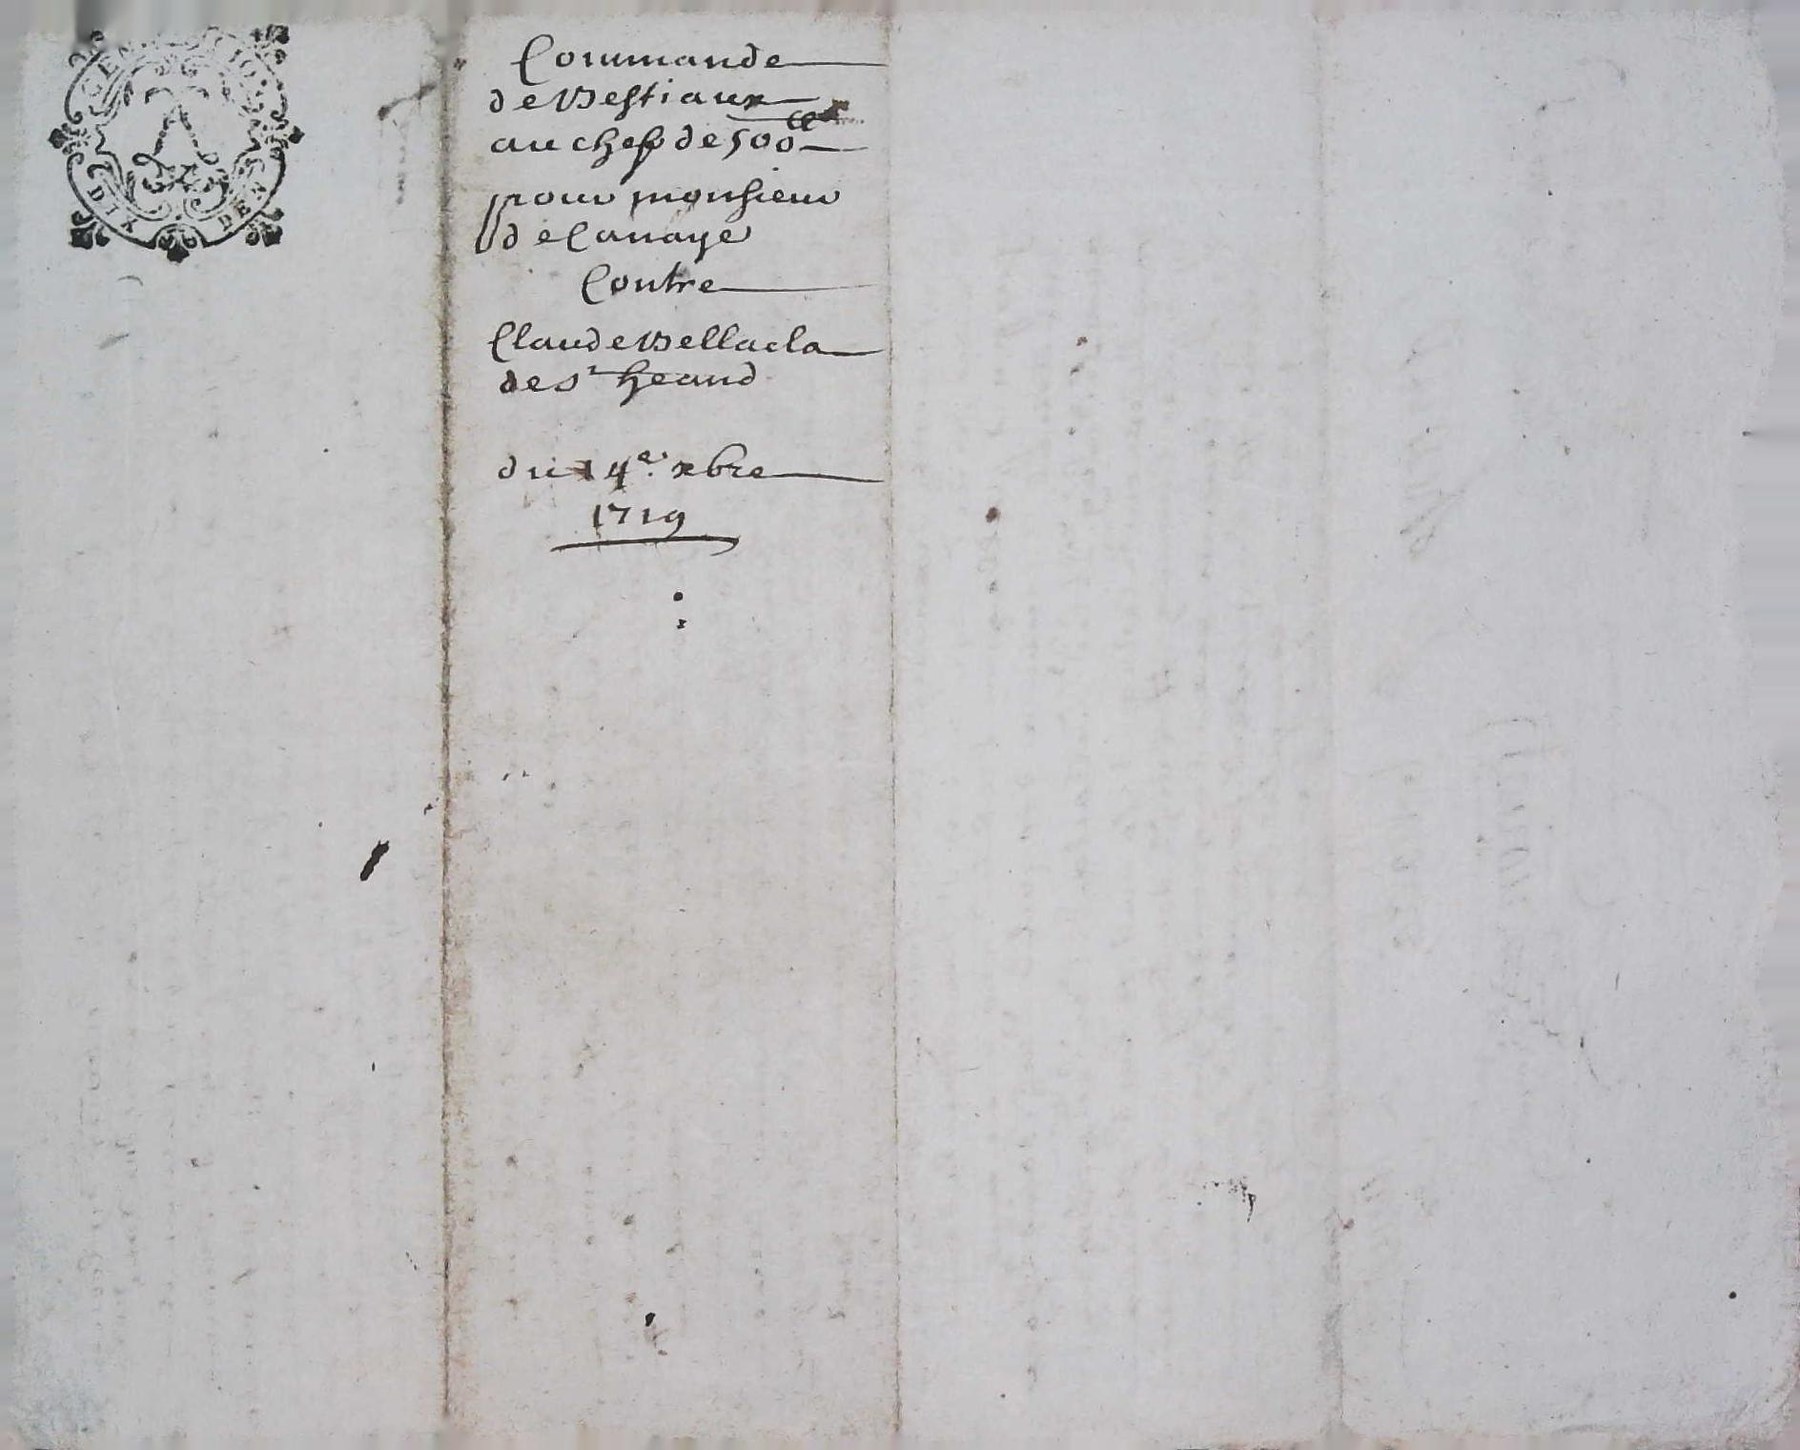 GENER
DIX DEN
Commande
de Bestiaux
au chef de 500ll
pour monsieur
de Canaye
Contre
Claude Bellacla
de St heand
du 14e. xbre
1719